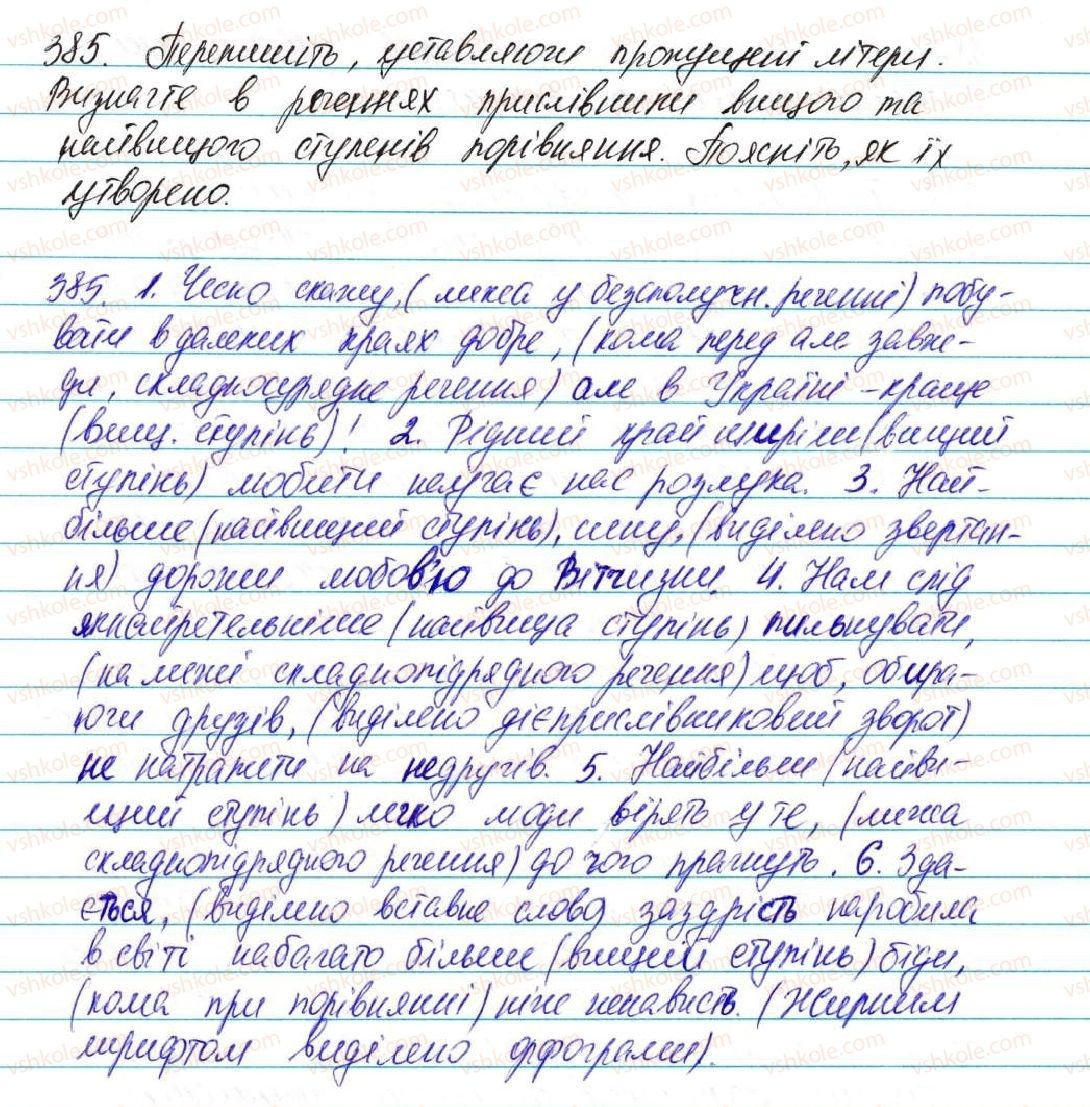 385. Перепишіть, уставляючи пропущені літери.
Визначте в реченнях прислівники вищого та
найвищого ступенів порівняння. Поясніть, як їх
утворено.
385. 1. Чесно скажу, (межа у безсполучн. реченні) побу-
вати в далеких краях добре, (кома перед але завж-
ди, складносурядне речення) але в Україні - краще
(вищ. ступінь)! 2. Рідний край щиріше (вищий
ступінь) любити научає нас розлука. 3. Най-
більше (найвищий ступінь), сину, (виділено звертан-
ня) дорожи любов'ю до Вітчизни. 4. Нам слід
якнайретельніше (найвища ступінь) пильнувати,
(на межі складнопідрядного речення) щоб, обира-
ючи друзів, (виділено дієприслівниковий зворот)
не натрапити на недругів. 5. Найбільш (найви-
щий ступінь) легко люди вірять у те, (межа
складнопідрядного речення) до чого прагнуть. 6. Зда-
ється, (виділено вставне слово) заздрість наробила
в світі набагато більше (вищий ступінь) біди,
(кома при порівнянні) ніж ненависть. (Жирним
шрифтом виділено орфограми).
vshkole.com